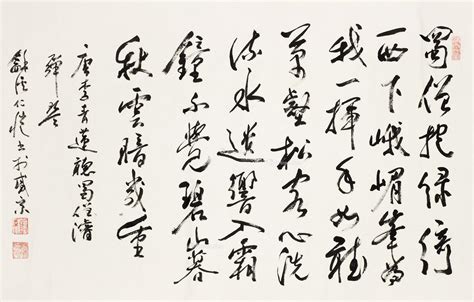 蜀僧抱綠綺
西下峨嵋峯為
我一揮手如聽
萬壑松客心洗
流水遺響入霜
鐘不覺碧山暮
秋雲暗幾重
唐李青蓮聽蜀僧濬
彈琴
龢溪仁愷書於盛京